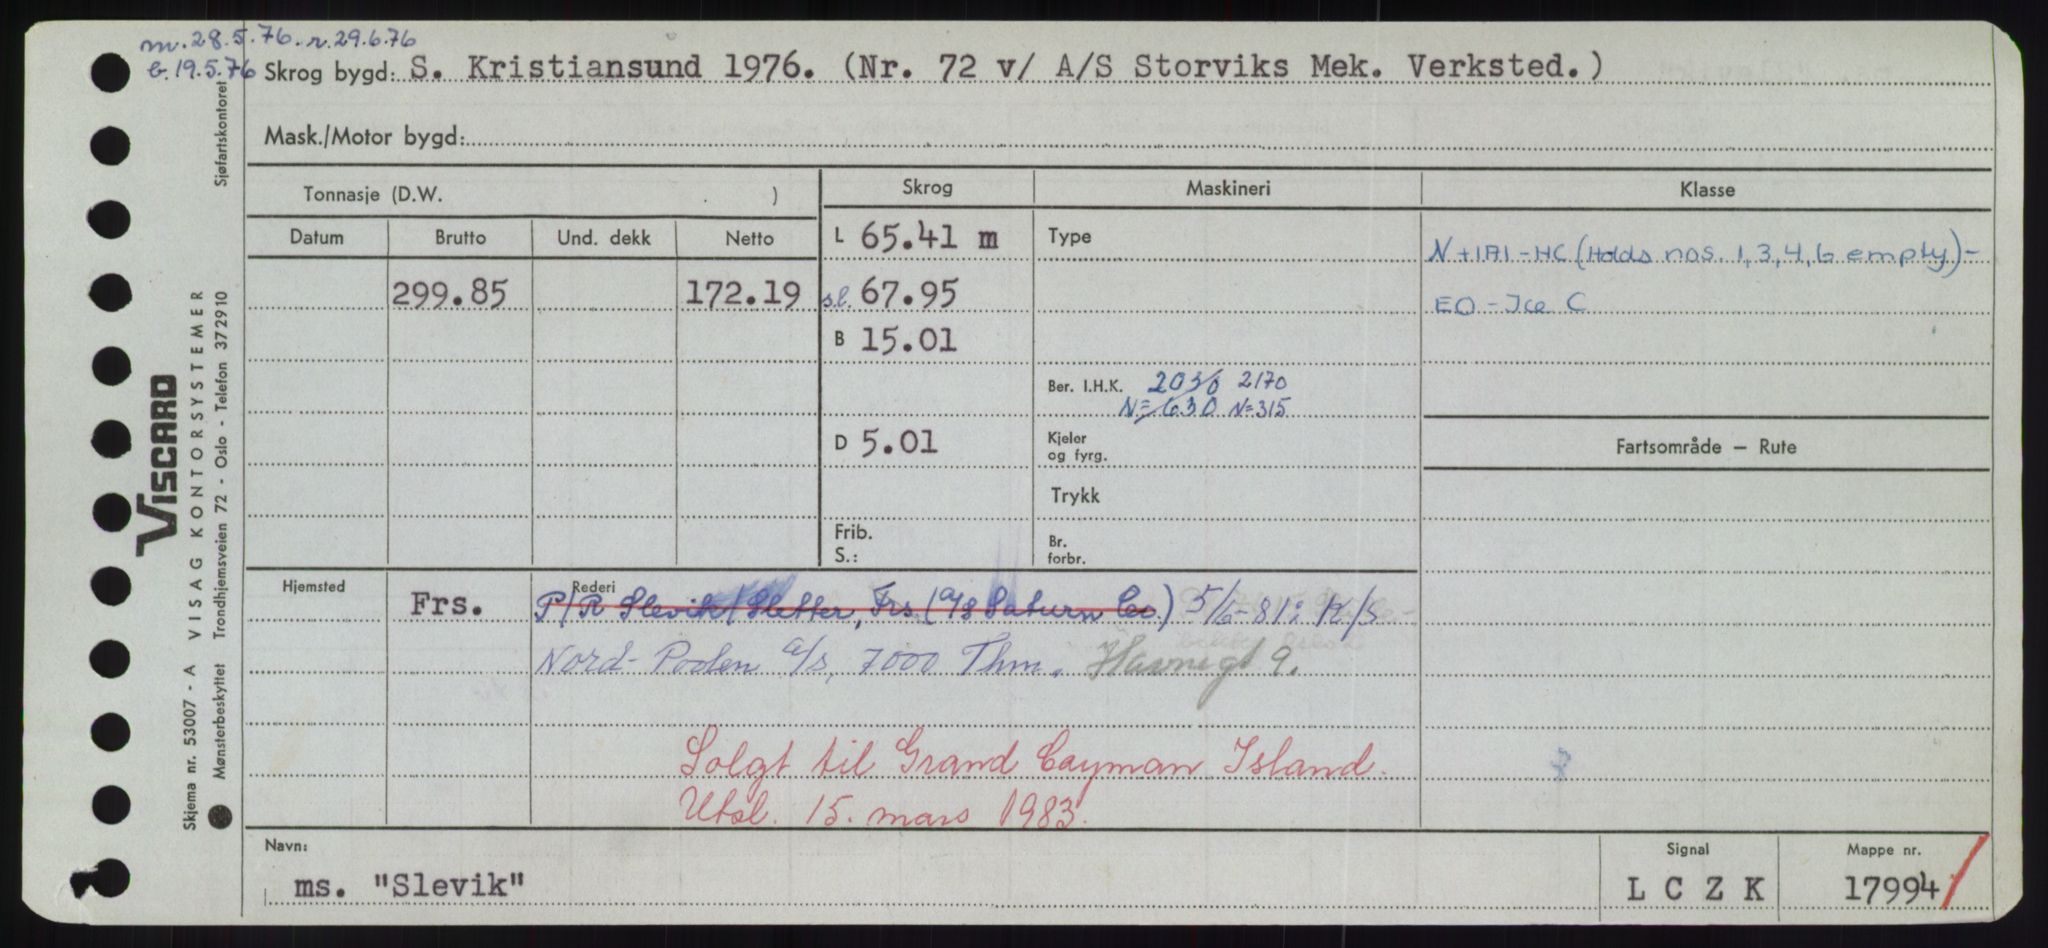 m. 28.5.76. r. 29.6.76
b. 19.5.76 Skrog bygd: S. Kristiansund 1976. (Nr. 72 v/ A/S Storviks Mek. Verksted.)
Mask./Motor bygd:
Tonnasje (D.W. ) Skrog Maskineri Klasse
Datum Brutto Und. dekk Netto L 65.41 m Type N+1A1-HC (Holds nos. 1,3,4,6 empty)-
299.85 172.19 s.l. 67.95 EO-Ice C
B 15.01
Ber. I.H.K. 2030 2170
N=630 N=315
D 5.01 Kjeler og fyrg. Fartsområde — Rute
Trykk
Frib. S.: Br. forbr.
Hjemsted Frs. Rederi P/R Slevik/Sletter, Frs (A/S Saturn Co.) 5/6-81: K/S
Nord-Poolen a/s, 7000 Thm. Havnegt 9.
Solgt til Grand Cayman Island.
Utsl. 15. mars 1983.
Navn: Signal Mappe nr.
ms. "Slevik" L C Z K 17994/
VISCARD
VISAG KONTORSYSTEMER
Skjema nr. 53007 - A
Mønsterbeskyttet Trondhjemsveien 72 - Oslo - Telefon 372910
Sjøfartskontoret